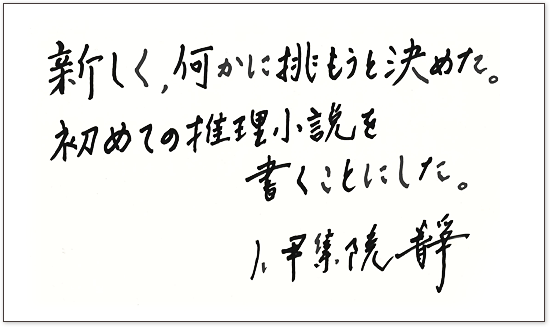 新しく,何かに挑もうと決めた。
初めての推理小説を
書くことにした。
伊集院静